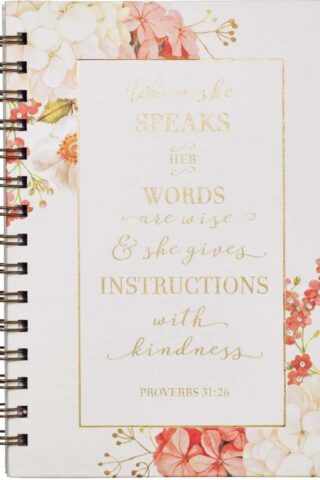 When she
SPEAKS
HER
WORDS
are wise
& she gives
INSTRUCTIONS
with
kindness
PROVERBS 31:26